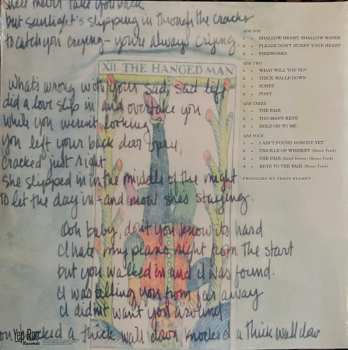 but sunlight's slipping in through the cracks
to catch you crying - you're always crying
XII THE HANGED MAN
What's wrong with your sad, sad life
did a love slip in and overtake you
while you weren't looking
you left your back door open
cracked just right
she slipped in in the middle of the night
to let the day in - and now she's staying.
Ooh baby, don't you know it's hard
I hate my piano, right from the start
but you walked in and I was found.
I was telling you from far away
I didn't want you around
you knocked a thick wall down knocked a thick wall down
Yep Roc
Records
SIDE ONE
SHALLOW HEART, SHALLOW WATER
PLEASE DON'T HURRY YOUR HEART
FIREWORKS
SIDE TWO
WHAT WILL YOU SAY
THICK WALLS DOWN
SORRY
POST
SIDE THREE
THE FAIR
TOO MANY KEYS
HOLD ON TO ME
SIDE FOUR
I AIN'T FOUND NOBODY YET
TROUBLE OF WHISKEY (Bonus Track)
THE FAIR (Bonus Track)
BACK TO THE FAIR (Bonus Track)
PRODUCED BY CRAIG STREET